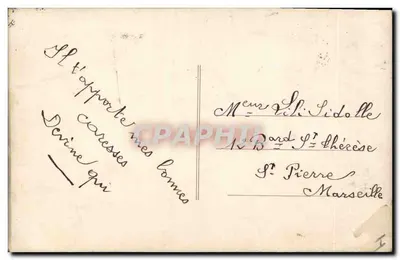 Il t'apporte mes bonnes
caresses
Devine qui
Meur Lili Sidolle
12 Bard St Thérèse
St Pierre
Marseille
CRAPHIC